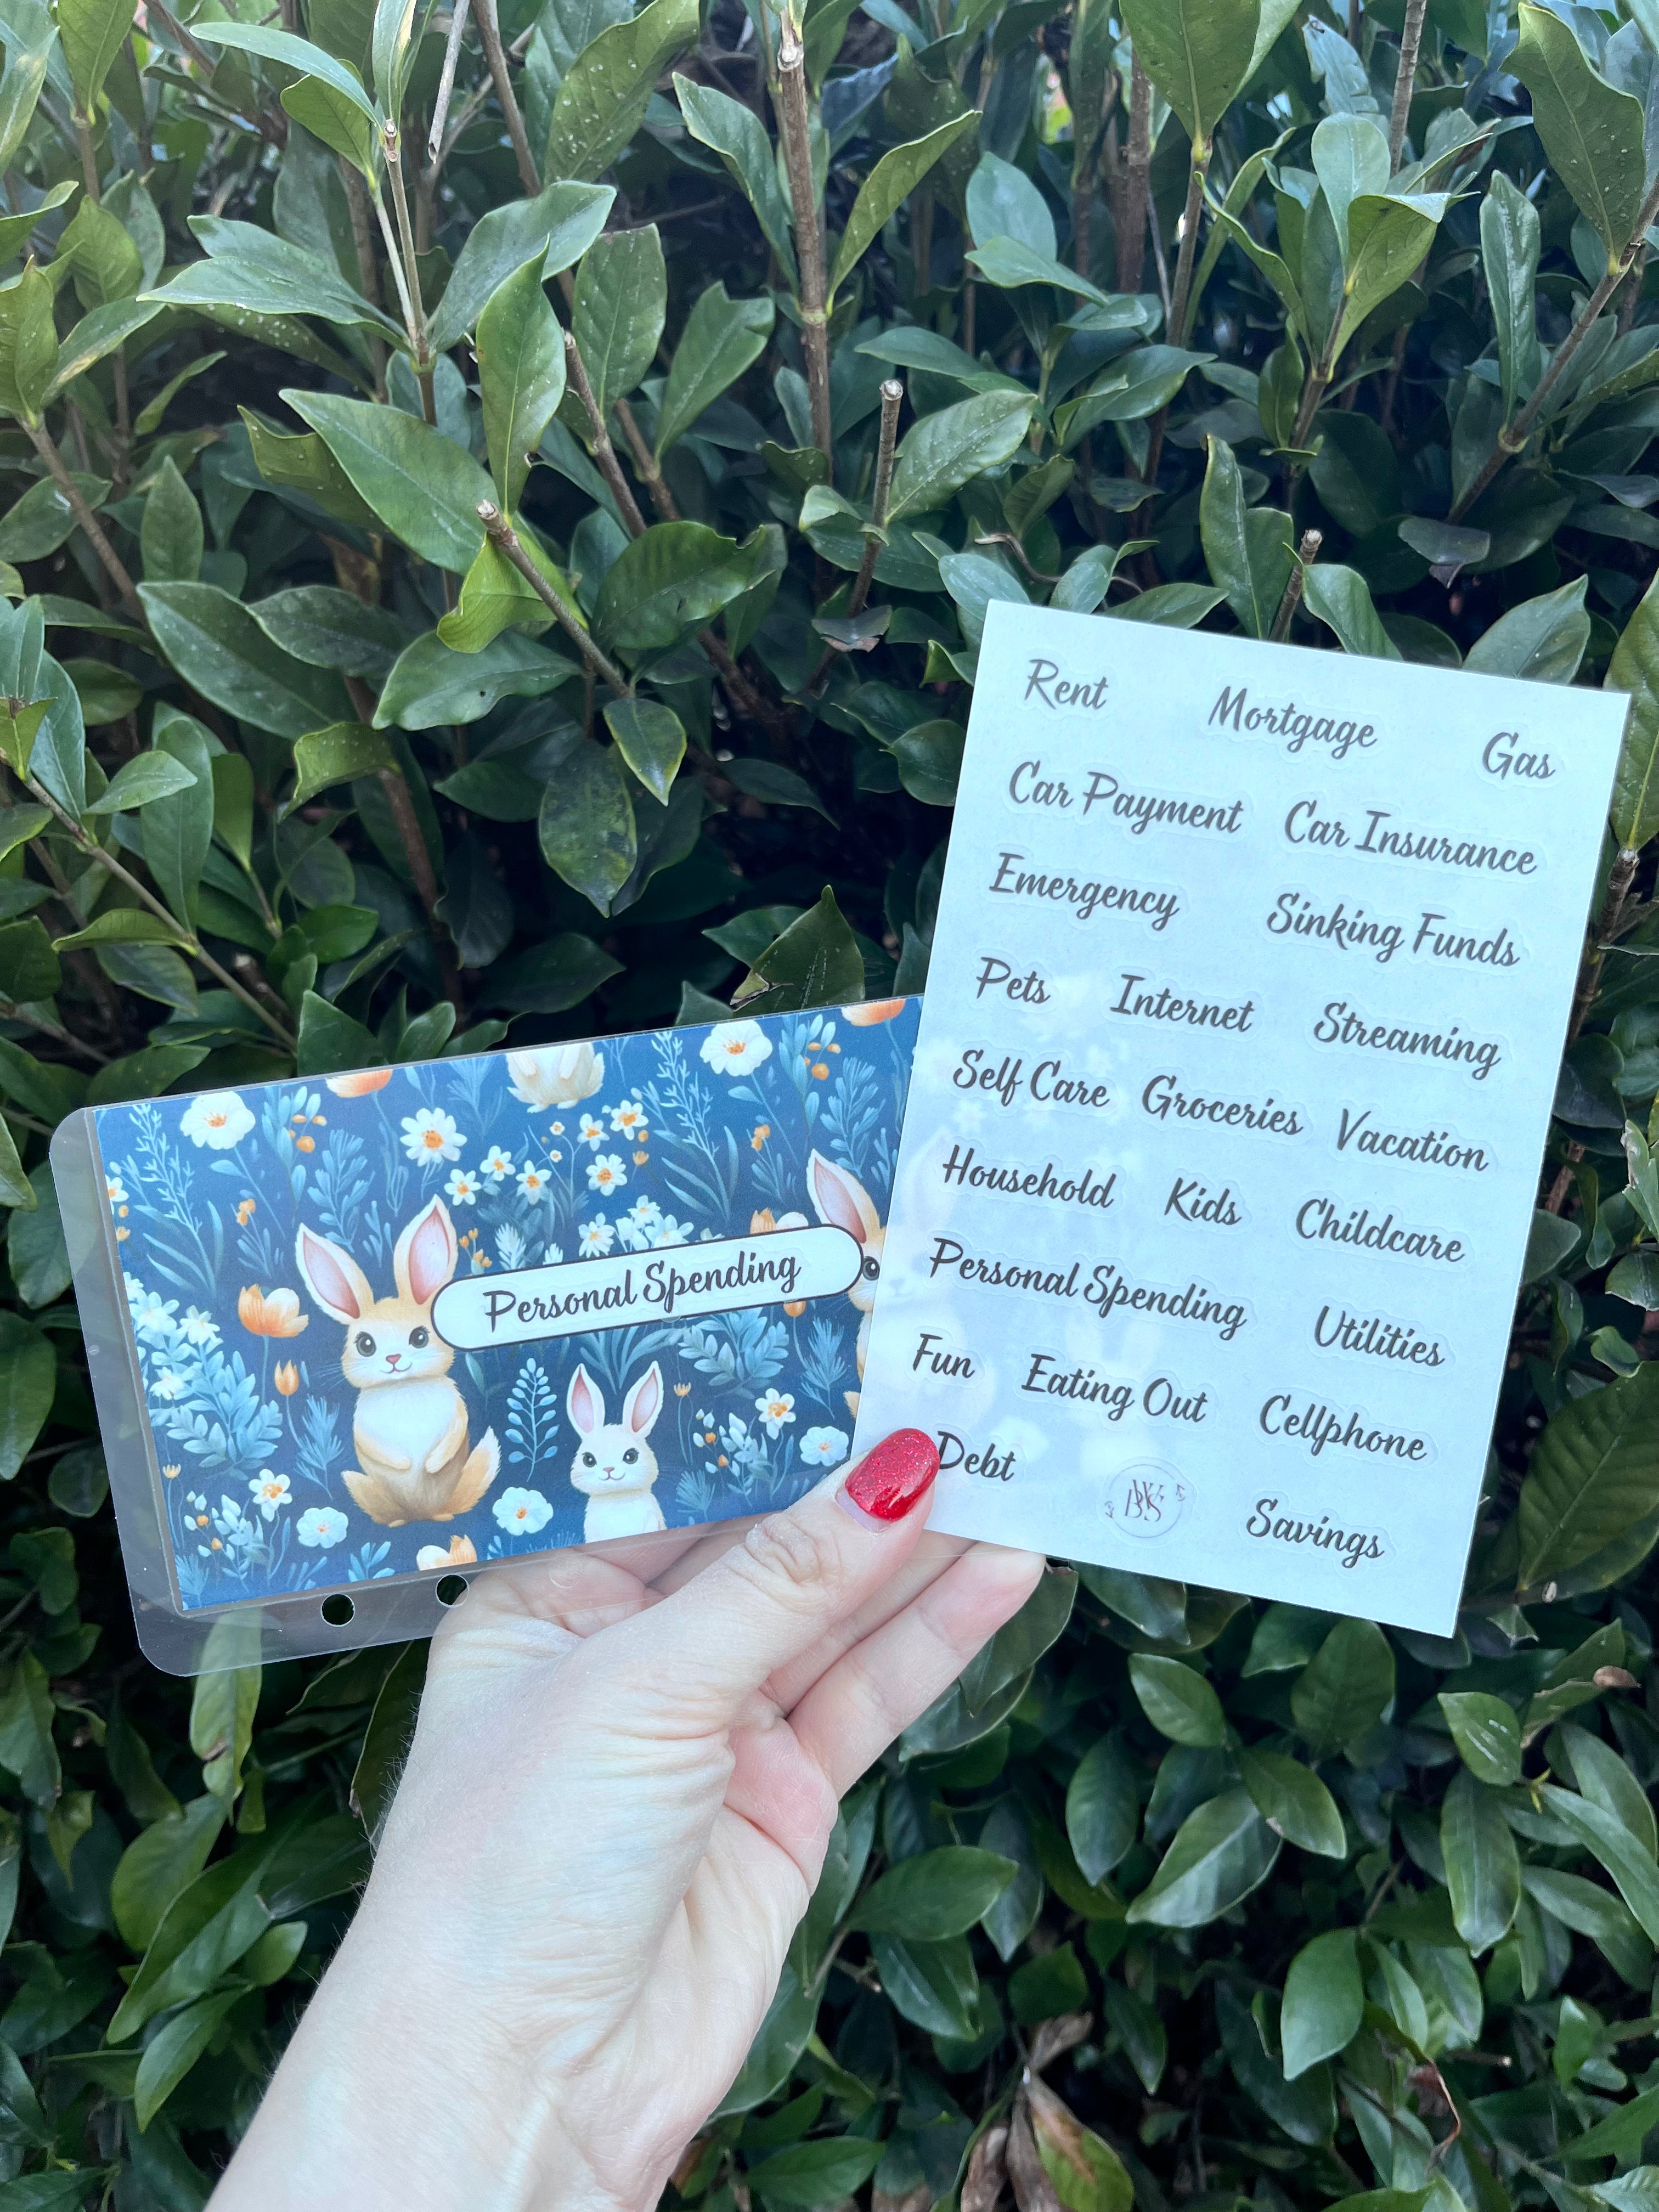 Rent Mortgage Gas
Car Payment Car Insurance
Emergency Sinking Funds
Pets Internet Streaming
Self Care Groceries Vacation
Household Kids Childcare
Personal Spending Utilities
Fun Eating Out Cellphone
Debt Savings
Personal Spending